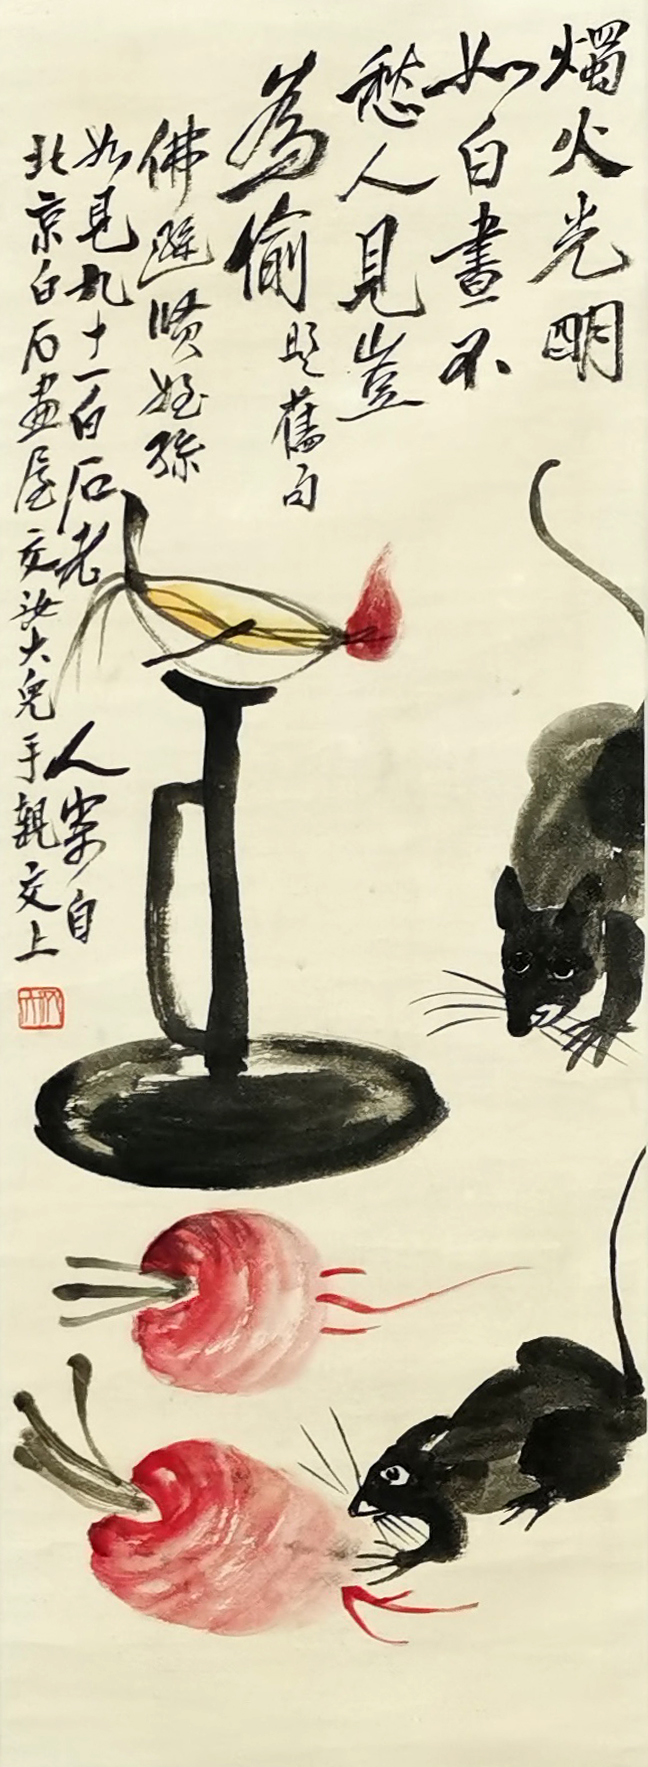 燭火光明
如白晝不
愁人見豈
為偷題舊句
佛避賢姪孫
如見九十一白石老
人寄自
北京白石畫屋交汝大兒手親交上